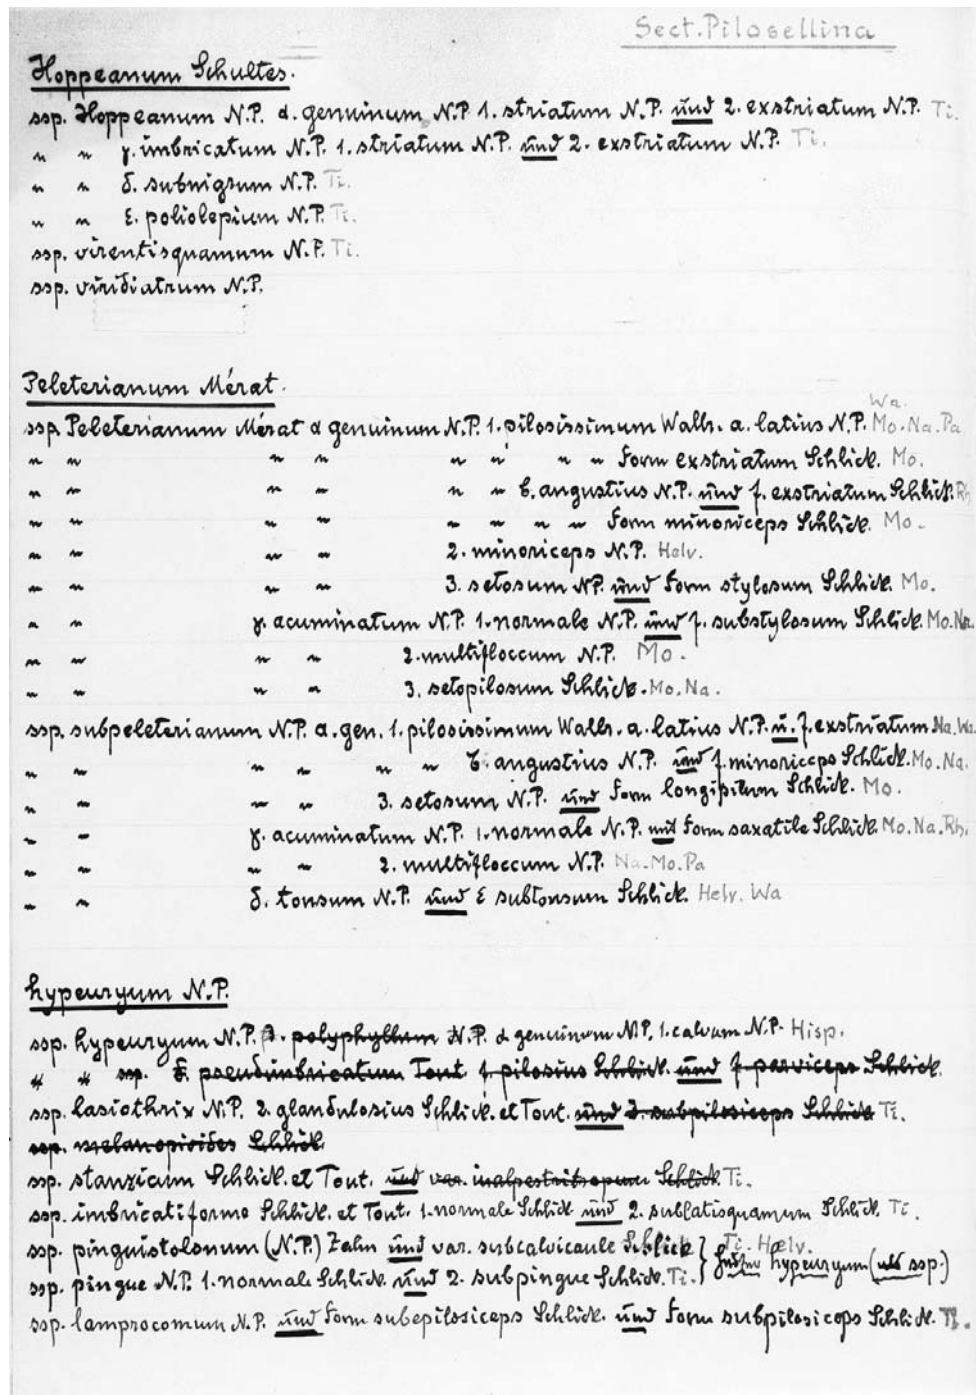 Sect. Pilosellina
Hoppeanum Schultes.
ssp. Hoppeanum N.P. α. genuinum N.P 1. striatum N.P. und 2. exstriatum N.P. Ti.
" " γ. imbricatum N.P. 1. striatum N.P. und 2. exstriatum N.P. Ti.
" " δ. subnigrum N.P. Ti.
" " ε. poliolepium N.P. Ti.
ssp. virentisquamum N.P. Ti.
ssp. viridiatrum N.P.
Peleterianum Mérat.
Wa.
ssp. Peleterianum Mérat α genuinum N.P. 1. pilosissimum Wallr. a. latius N.P. Mo. Na. Pa
" " " " " " " " Form exstriatum Schlick. Mo.
" " " " " " b. angustius N.P. und f. exstriatum Schlick. Rh
" " " " " " " " Form minoriceps Schlick. Mo.
" " " " 2. minoriceps N.P. Helv.
" " " " 3. setosum NP. und Form stylosum Schlick. Mo.
" " γ. acuminatum N.P. 1. normale N.P. und f. substylosum Schlick. Mo. Na.
" " " " 2. multifloccum N.P. Mo.
" " " " 3. setopilosum Schlick. Mo. Na.
ssp. subpeleterianum N.P. α. gen. 1. pilosissimum Wallr. a. latius N.P. u. f. exstriatum Na. Wa.
" " " " " " b. angustius N.P. und f. minoriceps Schlick. Mo. Na.
" " " " 3. setosum N.P. und Form longipilum Schlick. Mo.
" " γ. acuminatum N.P. 1. normale N.P. und Form saxatile Schlick. Mo. Na. Rh.
" " " " 2. multifloccum N.P. Na. Mo. Pa
" " δ. tonsum N.P. und ε subtonsum Schlick. Helv. Wa
hypeuryum N.P.
ssp. hypeuryum N.P. polyphyllum N.P. α genuinum N.P. 1. calvum N.P. Hisp.
" " ssp. pseudimbricatum Tout. f. pilosius Schlick. und f. parviceps Schlick.
ssp. lasiothrix N.P. 2. glandulosius Schlick. et Tout. und 3. subpilosiceps Schlick Ti.
ssp. melanopioides Schlick
ssp. stanzicum Schlick. et Tout. und var. inalpestritropum Schlick. Ti.
ssp. imbricatiforme Schlick. et Tout. 1. normale Schlick und 2. sublatisquamum Schlick. Ti.
ssp. pinguistolonum (N.P.) Zahn und var. subcalvicaule Schlick } Ti. Helv.
ssp. pingue N.P. 1. normale Schlick. und 2. subpingue Schlick. Ti. } hypeuryum (als ssp.)
ssp. lamprocomum N.P. und Form subepilosiceps Schlick. und Form subpilosiceps Schlick. Ti.